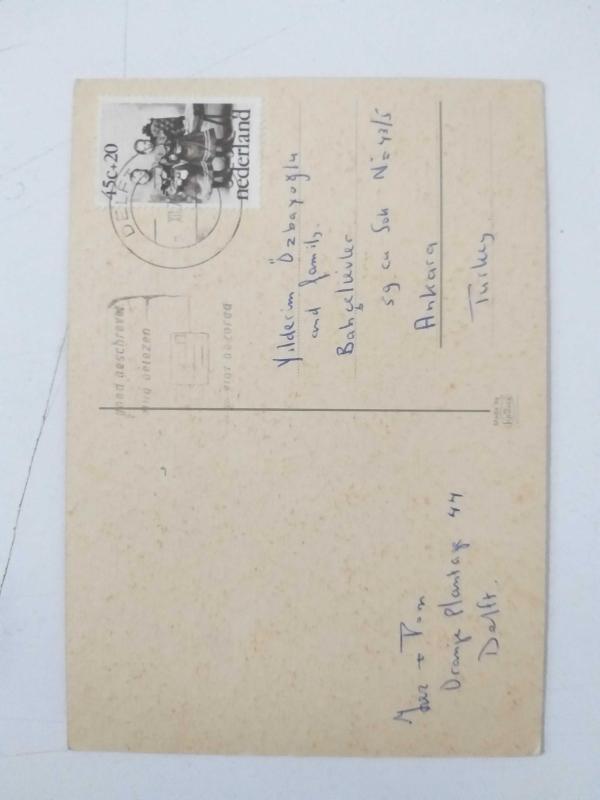 45c+20
nederland
DELFT
goed geschreven
Yilderim Özbayoğlu
and family
Bahçelievler
59 cu Sok N:= 43/5
Ankara
Turkey
Made by
+ Tom
Oranje Plantage 44
Delft.